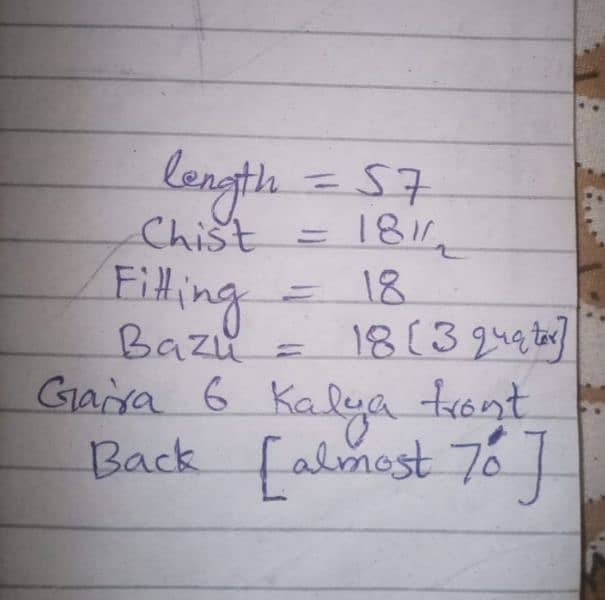 length = 57
Chist = 18 1/2
Fitting = 18
Bazu = 18 [3 quater]
Gaira 6 Kalya front
Back [almost 70]